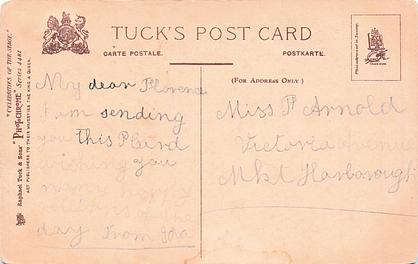 TUCK'S POST CARD
CARTE POSTALE.
POSTKARTE.
(FOR ADDRESS ONLY)
"CELEBRITIES OF THE STAGE."
Raphael Tuck & Sons' "PHOTOCHROME" Series 4481
ART PUBLISHERS TO THEIR MAJESTIES THE KING & QUEEN.
My dear Florence
I am sending
you this
wishing you
day from
Miss F Arnold
Victoria Avenue
Mkt Harborough